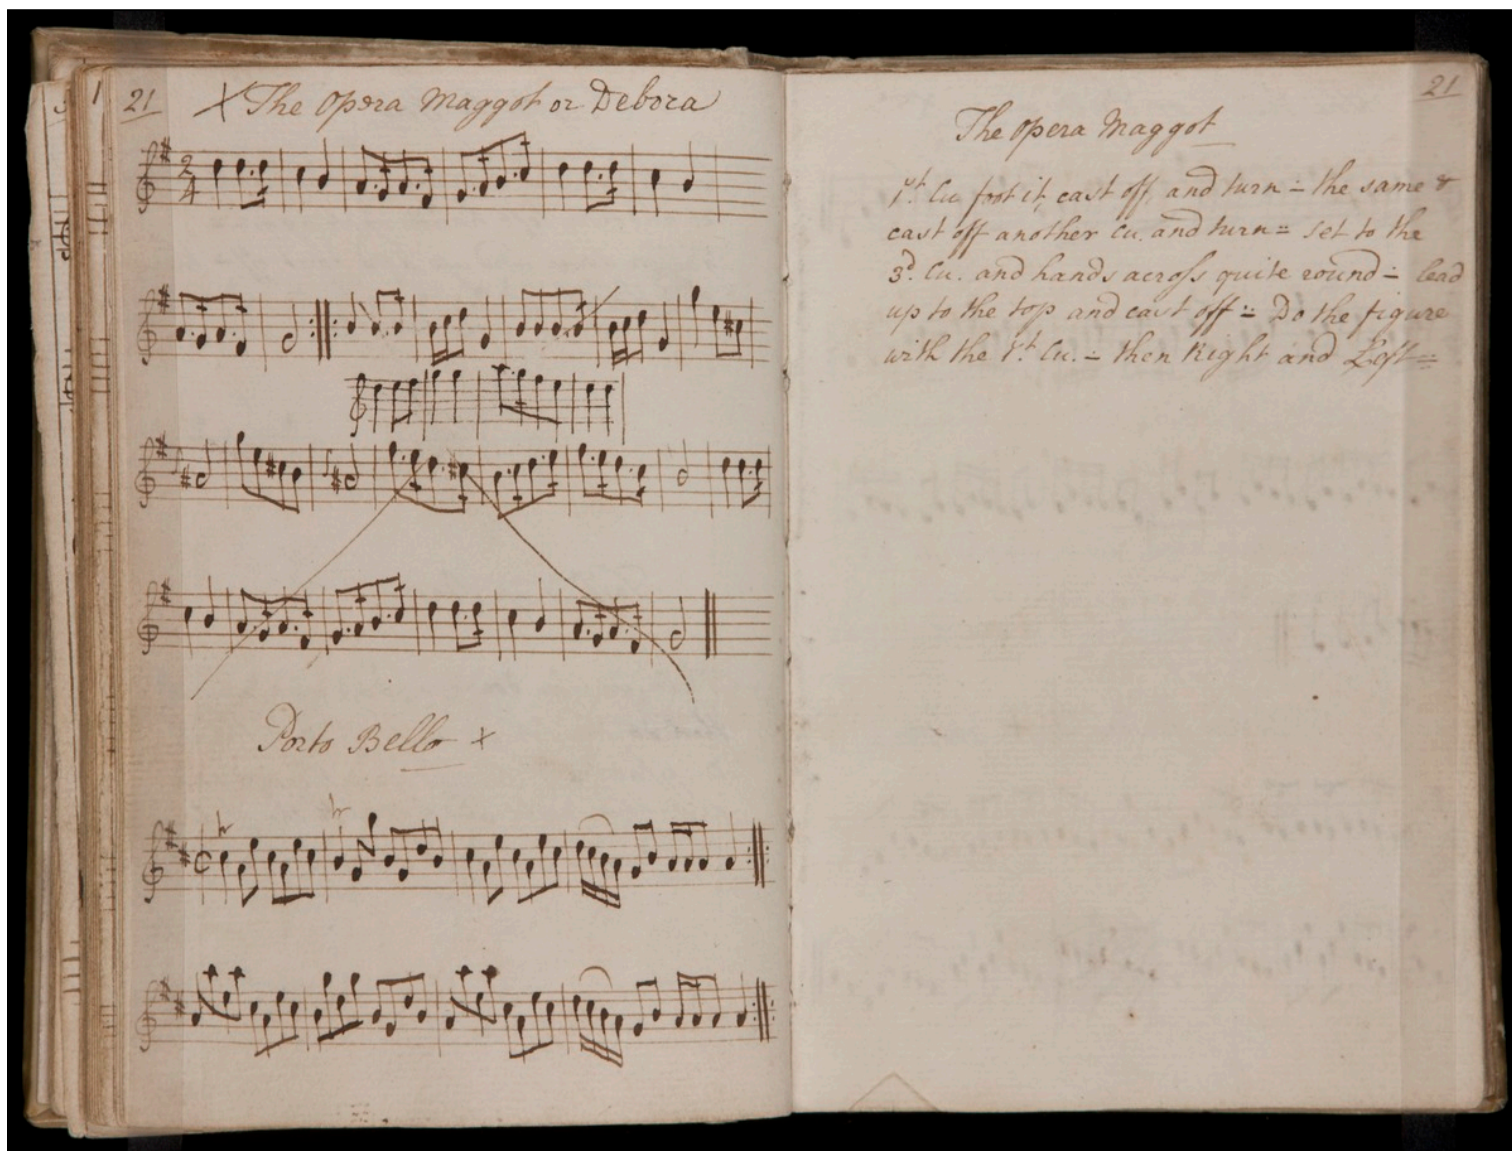 21
X The Opera Maggot or Debora
2
4
Porto Bello x
21
The Opera Maggot
1st. Cu. foot it, cast off, and turn = the same &
cast off another Cu. and turn = set to the
3d. Cu. and hands across quite round = lead
up to the top and cast off = Do the figure
with the 1st. Cu. = then Right and Left =